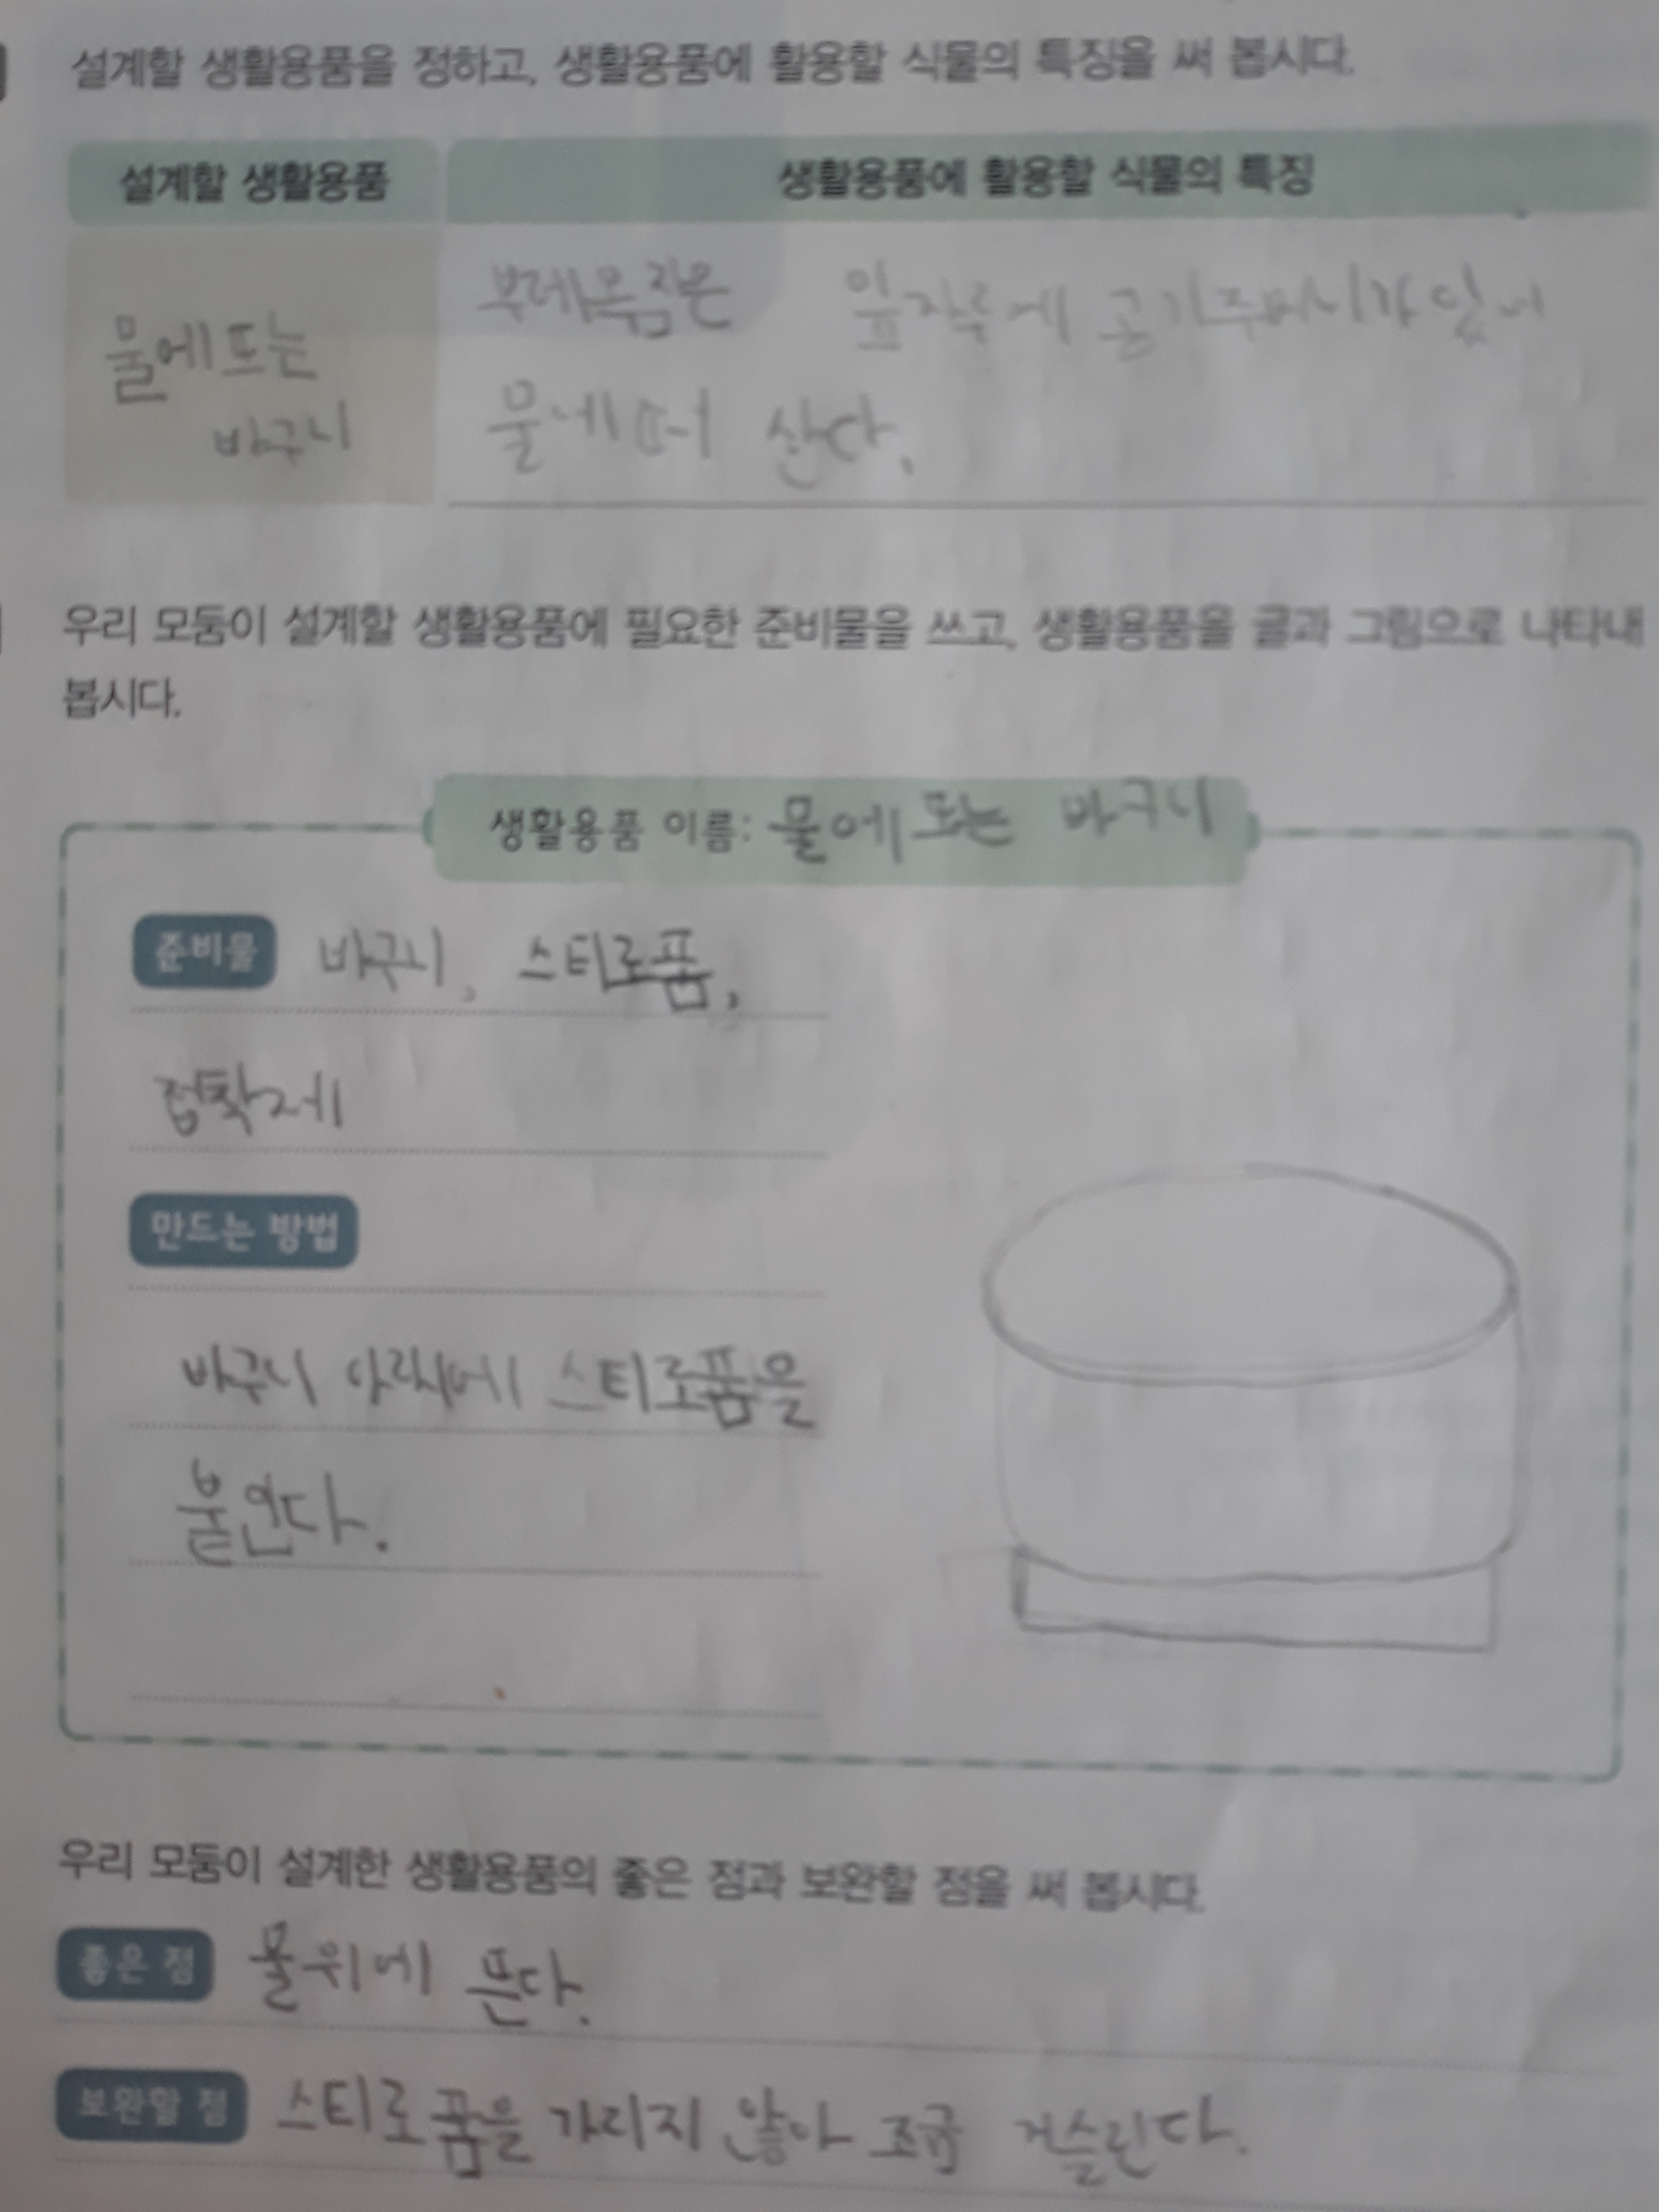 설계할 생활용품을 정하고, 생활용품에 활용할 식물의 특징을 써 봅시다.
설계할 생활용품 생활용품에 활용할 식물의 특징
물에 뜨는
바구니
부레옥잠은 잎자루에 공기주머니가 있어
물에 떠 산다.
우리 모둠이 설계할 생활용품에 필요한 준비물을 쓰고, 생활용품을 글과 그림으로 나타내
봅시다.
생활용품 이름: 물에 뜨는 바구니
준비물 바구니, 스티로폼,
접착제
만드는 방법
바구니 아래에 스티로폼을
붙인다.
우리 모둠이 설계한 생활용품의 좋은 점과 보완할 점을 써 봅시다.
좋은 점 물위에 뜬다.
보완할 점 스티로폼을 가리지 않아 조금 거슬린다.